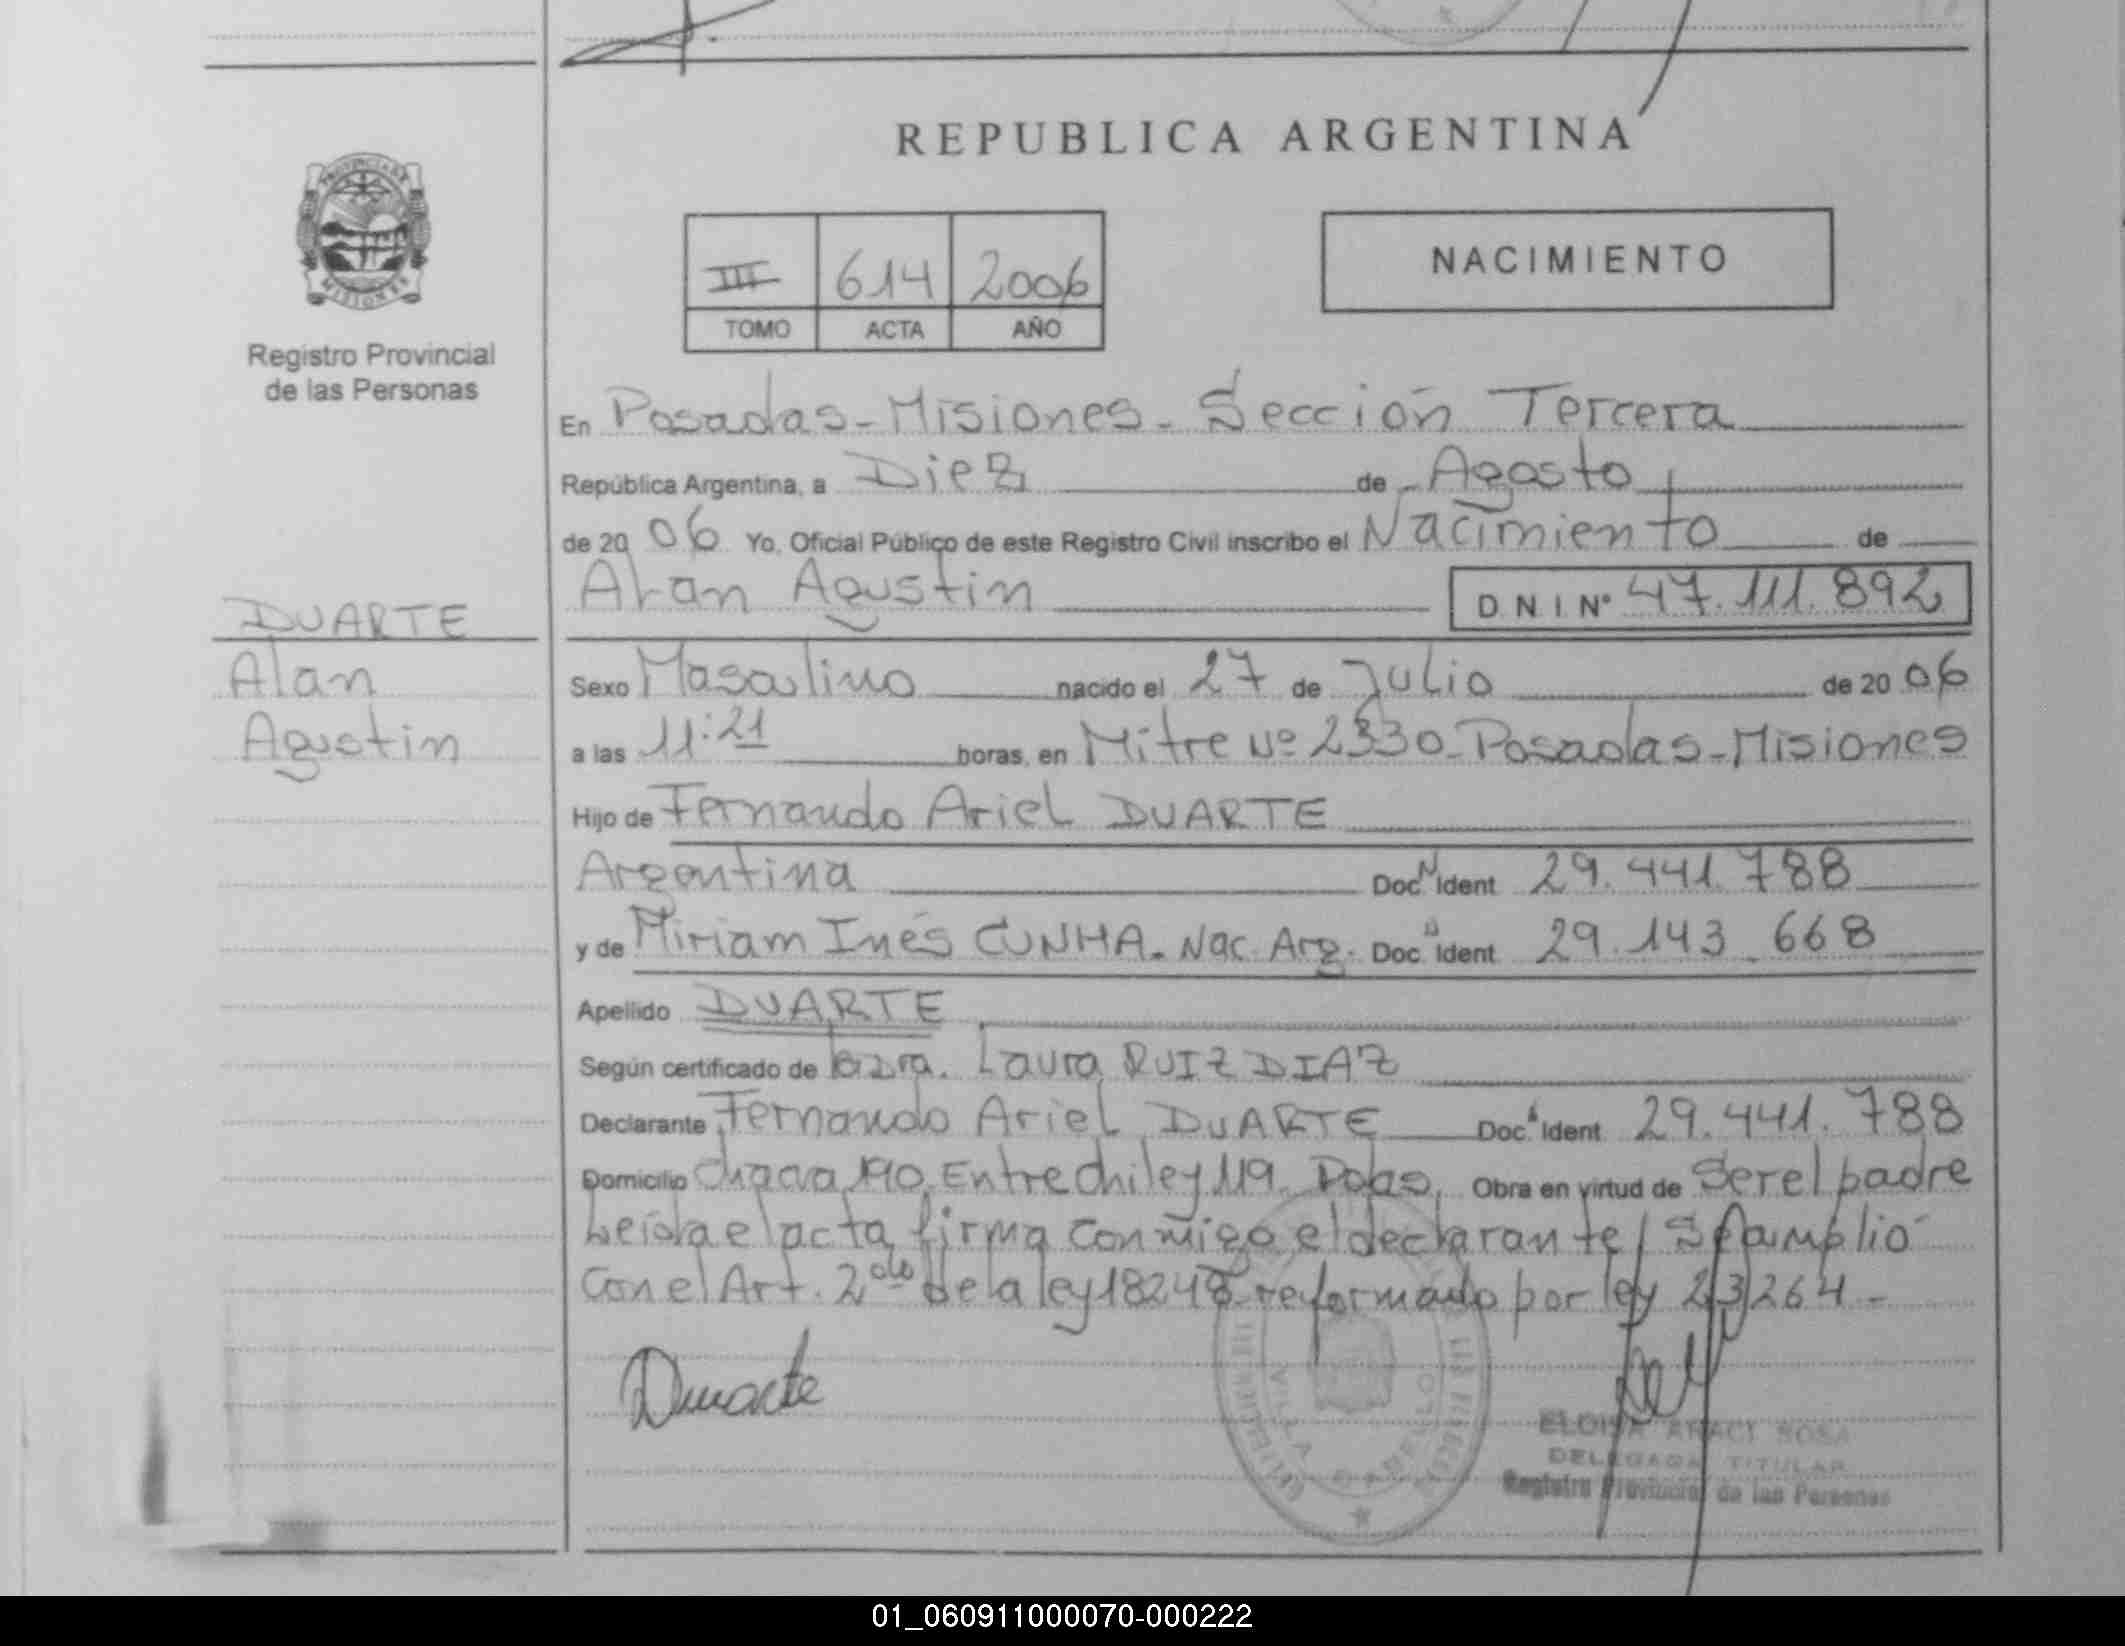 REPUBLICA ARGENTINA
PROVINCIA DE
MISIONES
Registro Provincial
de las Personas
III 614 2006
TOMO ACTA AÑO
NACIMIENTO
En Posadas-Misiones-Sección Tercera
República Argentina, a Diez de Agosto
de 2006 Yo, Oficial Público de este Registro Civil inscribo el Nacimiento de
Alan Agustin D.N.I.Nº 47.111.892
DUARTE
Alan
Agustin
Sexo Masculino nacido el 27 de Julio de 2006
a las 11:21 horas, en Mitre Nº 2330-Posadas-Misiones
Hijo de Fernando Ariel DUARTE
Argentina Doc N Ident 29.441.788
y de Miriam Inés CUNHA. Nac. Arg. Doc. Ident 29.143.668
Apellido DUARTE
Según certificado de la Dra. Laura RUIZ DIAZ
Declarante Fernando Ariel DUARTE Doc. Ident 29.441.788
Domicilio Chacra 190 Entre Chile y 119 Pdas, Obra en virtud de Ser el padre
Leída el acta firma conmigo el declarante/ Se amplió
Con el Art. 2do de la ley 18248 reformado por ley 23264-
Duarte
ELOISA ARACI SOSA
DELEGADA TITULAR
Registro Provincial de las Personas
01_060911000070-000222